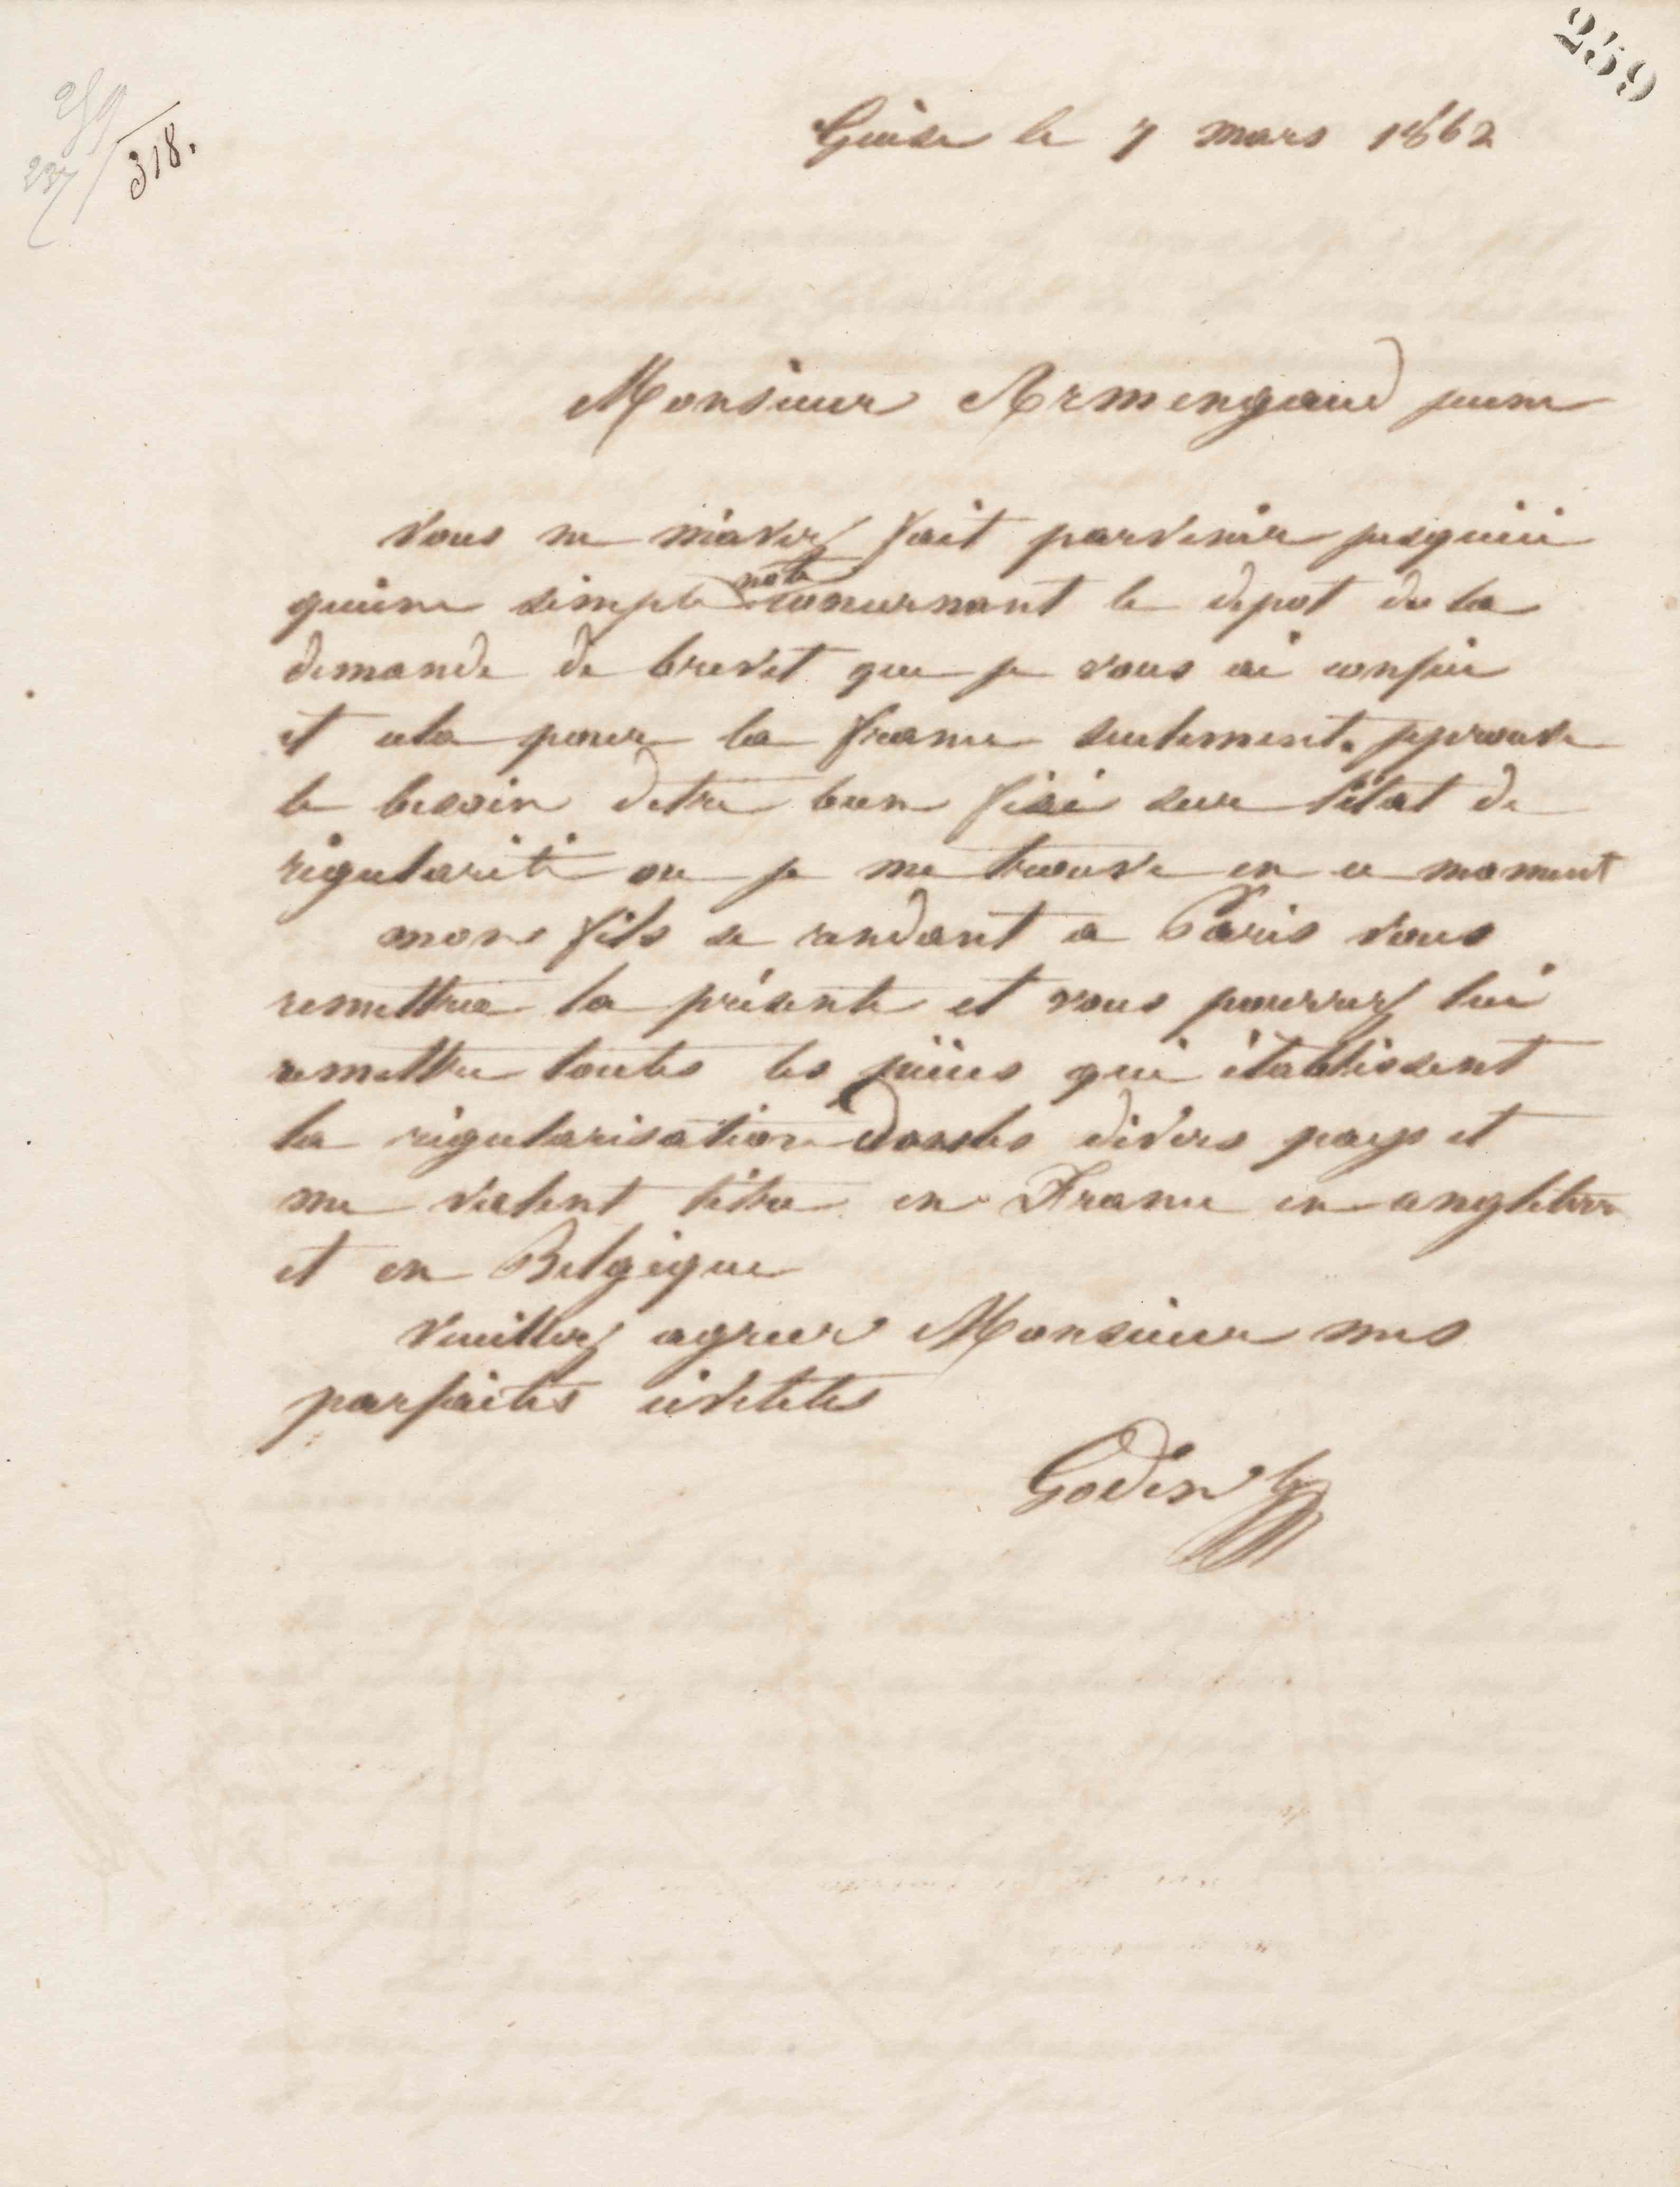 259
259
237
318.
Guise le 7 mars 1862
Monsieur Armengaud jeune
vous ne m'avez fait parvenir jusquici
quune simple note concernant le depot de la
demande de brevet que je vous ai confiée
et cela pour la france seulement. jeprouve
le besoin detre bien fixé sur l'état de
régularité ou je me trouve en ce moment
mon fils se rendant a Paris vous
remettra la présente et vous pourrez lui
remettre toutes les pièces qui établissent
la régularisation dans les divers pays et
me valent titre en France en angleterre
et en Belgique
Veuillez agreer Monsieur mes
parfaites civilités
Godin